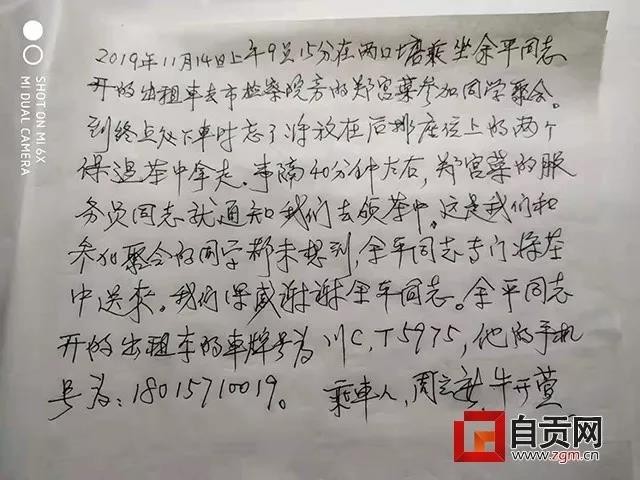 SHOT ON MI 6X
MI DUAL CAMERA
2019年11月14日上午9点15分在两口塘乘坐余平同志
开的出租车去市检察院旁的郑宫菜参加同学聚会。
到终点处下车时忘了将放在后排座位上的两个
保温茶中拿走。事隔40分钟左右,郑宫菜的服
务员同志就通知我们去领茶中,这是我们和
参加聚会的同学都未想到,余平同志专门将茶
中送来。我们深感谢谢余平同志。余平同志
开的出租车的车牌号为川C,T5975,他的手机
号为:18015710019。 乘車人,周立新,牛开萱
自贡网
www.zgm.cn